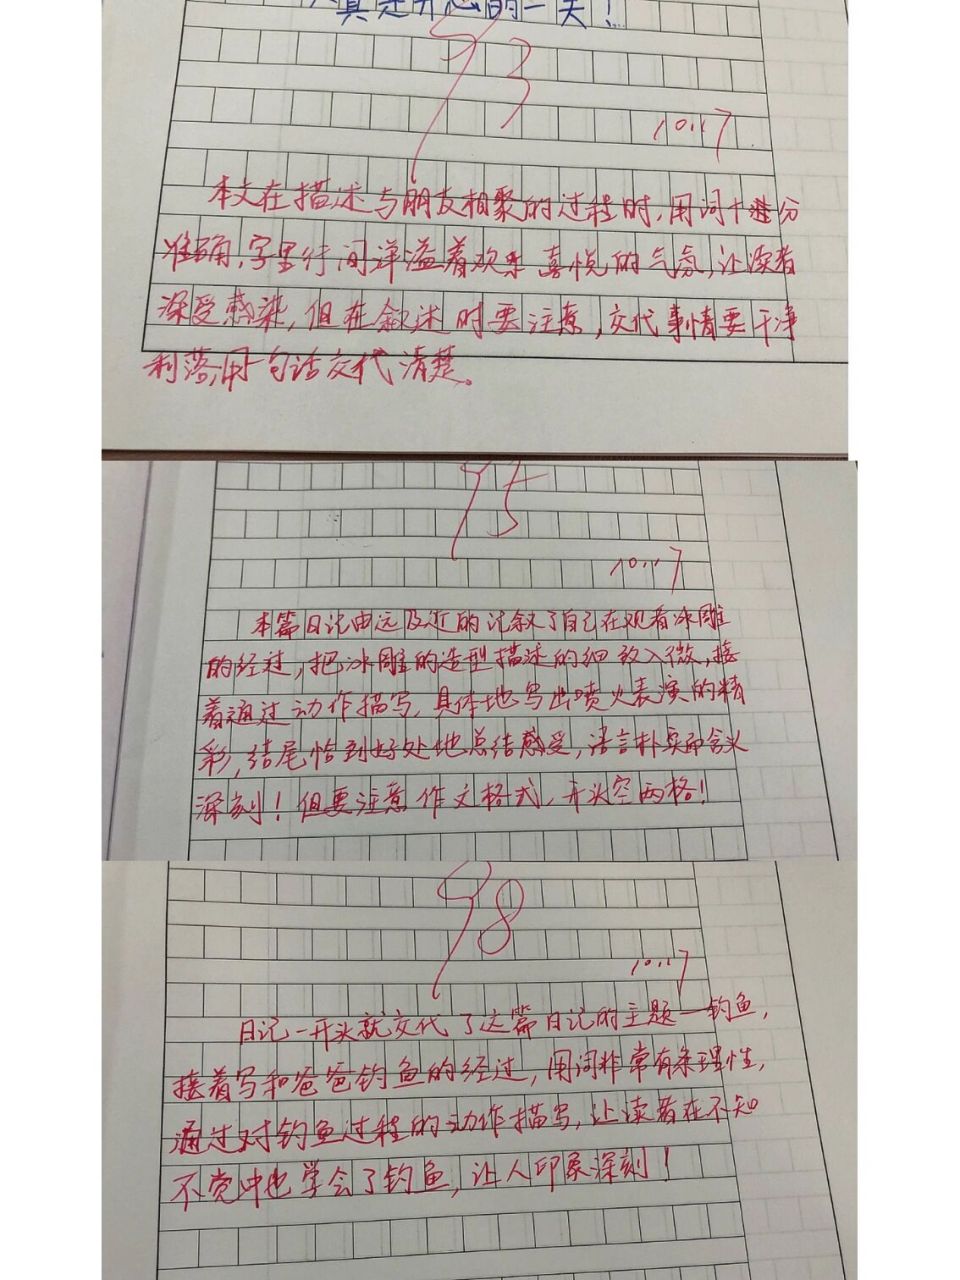 真是开心的一天！
93
10.17
本文在描述与朋友相聚的过程时，用词十分
准确，字里行间洋溢着欢乐喜悦的气氛，让读者
深受感染，但在叙述时要注意，交代事情要干净
利落，用一句话交代清楚。
95
10.17
本篇日记由远及近的记叙了自己在观看冰雕
的经过，把冰雕的造型描述的细致入微，接
着通过动作描写，具体地写出喷火表演的精
彩，结尾恰到好处地总结感受，语言朴实而含义
深刻！但要注意作文格式，开头空两格！
98
10.17
日记一开头就交代了这篇日记的主题—钓鱼，
接着写和爸爸钓鱼的经过，用词非常有条理性，
通过对钓鱼过程的动作描写，让读者在不知
不觉中也学会了钓鱼，让人印象深刻！